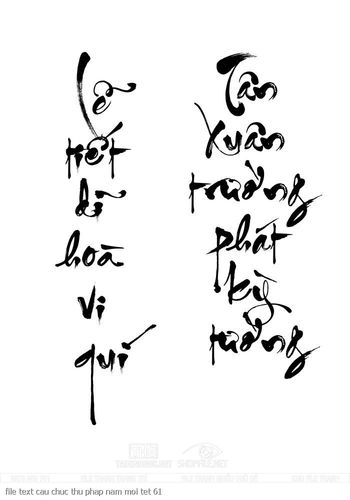 Lễ
tiết
dĩ
hoà
vi
quí
Tân
Xuân
trường
phát
kỳ
tường
SHOPFILE.NET
file text cau chuc thu phap nam moi tet 61